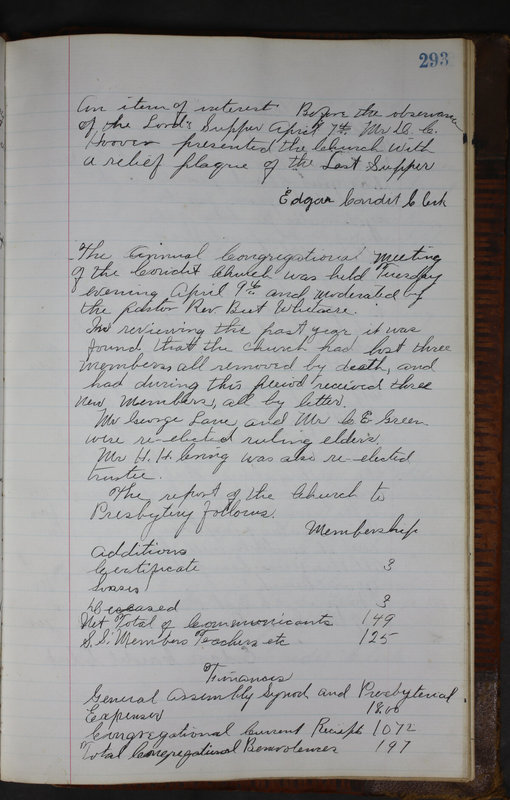 293
An item of interest. Before the observance
of the Lord's Supper April 7th. Mr D. C.
Hoover presented the Church with
a relief plaque of the Last Supper
Edgar Condit Clerk
The Annual Congregational Meeting
of the Condit Church was held Tuesday
evening April 9th and moderated by
the pastor Rev Burt Whitacre.
In reviewing the past year it was
found that the church had lost three
members, all removed by death, and
had during this period received three
new members, all by letter.
Mr George Lane, and Mr C E Green.
were re-elected ruling elders.
Mr H. H. was also re-elected
trustee.
The report of the Church to
Presbytery follows.
Membership
Additions
Certificate 3
Losses
Deceased 3
Net Total of Communicants 149
S.S. Members Teachers etc 125
Finances
General Assembly Synod and Presbyterial
Expenses 18.00
Congregational Current Receipts 1072
Total Congregational Benevolences 197